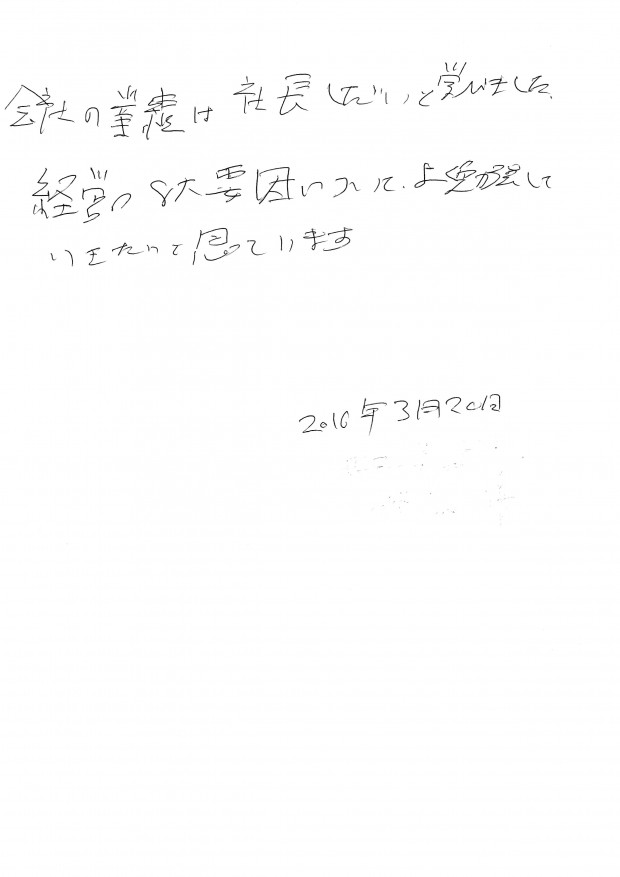 会社の業績は 社長しだい、と学びました。
経営の8大要因について、よ勉強して
いきたいと思っています
2010年3月20日